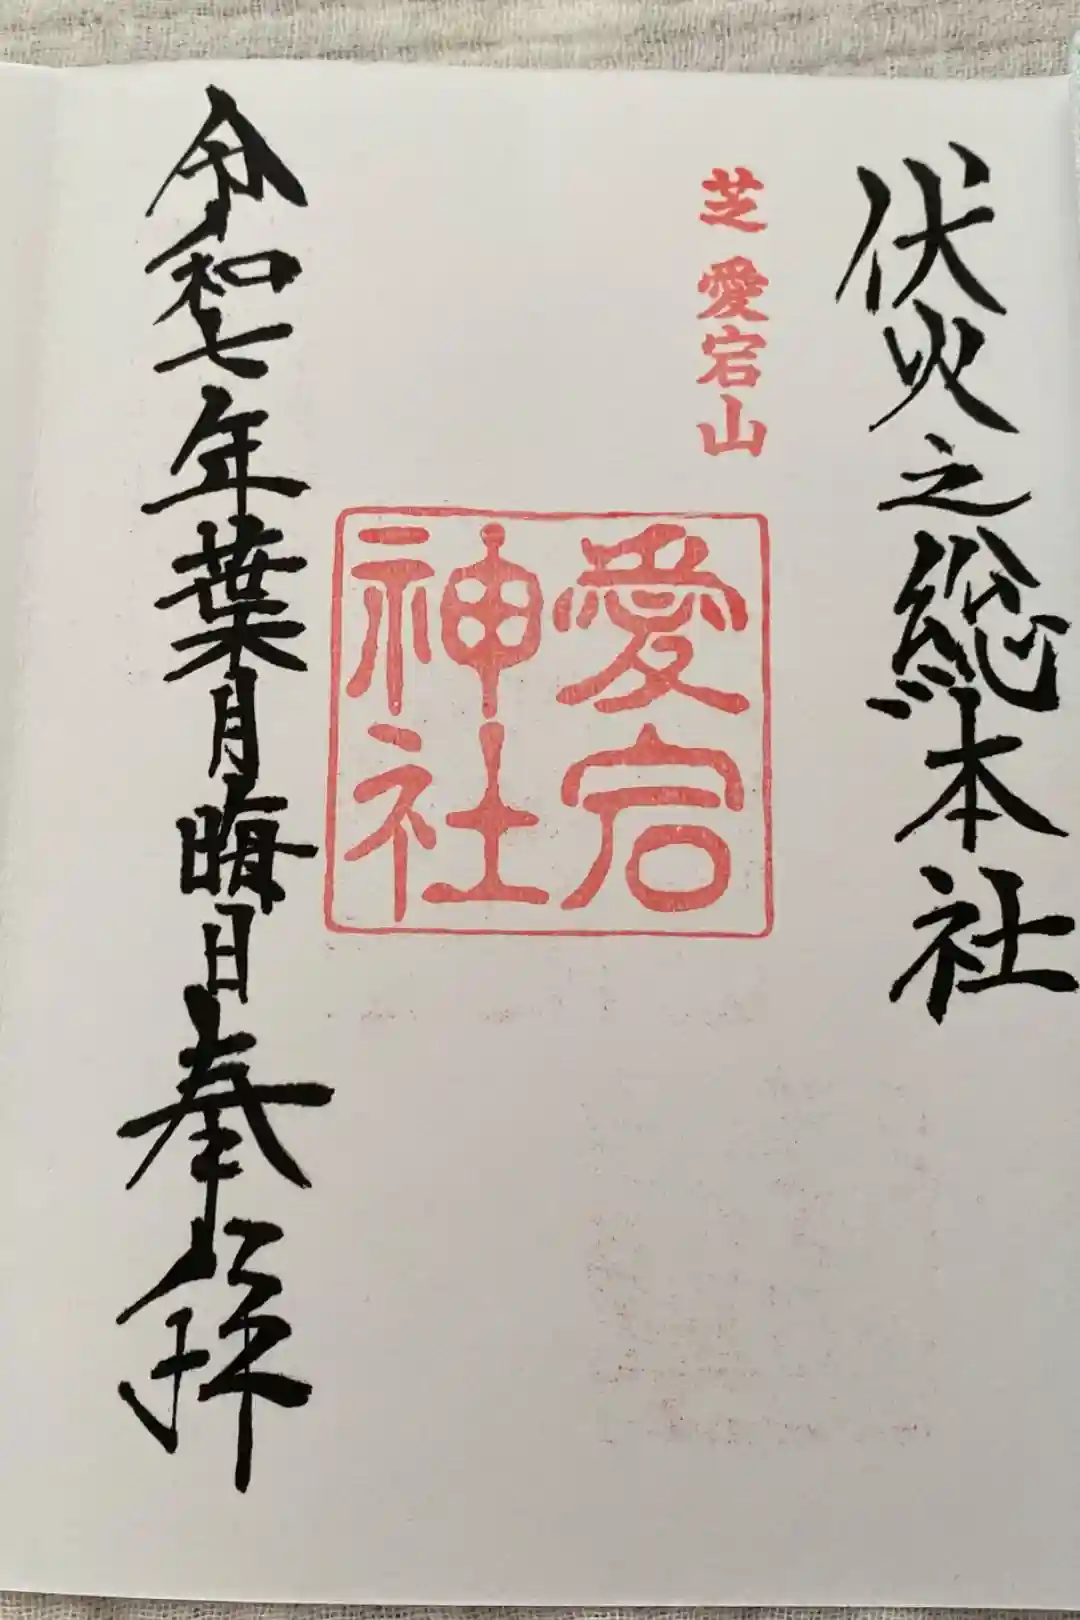 伏火之総本社
芝 愛宕山
愛宕
神社
令和七年葉月晦日奉拝